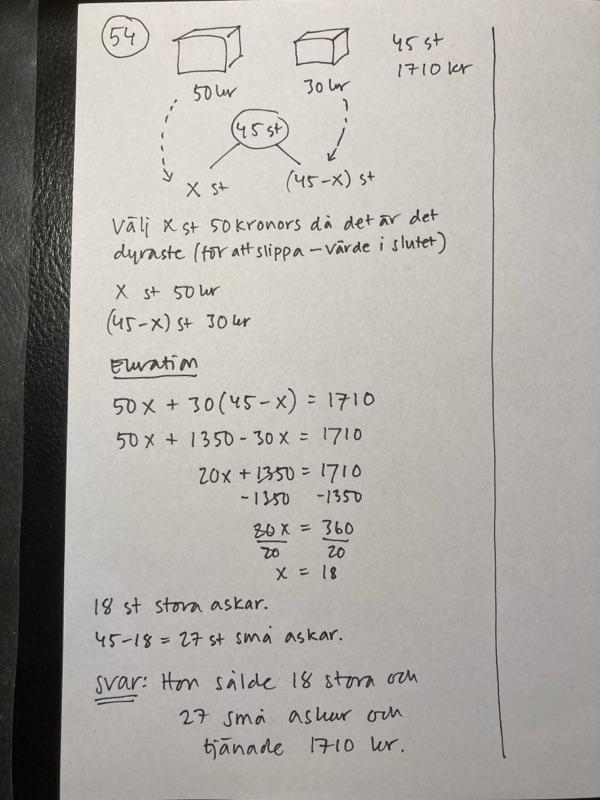 54
45 st
1710 kr
50 kr
30 kr
45 st
x st
(45-x) st
Välj x st 50 kronors då det är det
dyraste (för att slippa - värde i slutet)
x st 50 kr
(45-x) st 30 kr
Ekvation
50x + 30(45-x) = 1710
50x + 1350 - 30x = 1710
20x + 1350 = 1710
-1350 -1350
20x = 360
20 20
x = 18
18 st stora askar.
45-18 = 27 st små askar.
svar: Hon sålde 18 stora och
27 små askar och
tjänade 1710 kr.